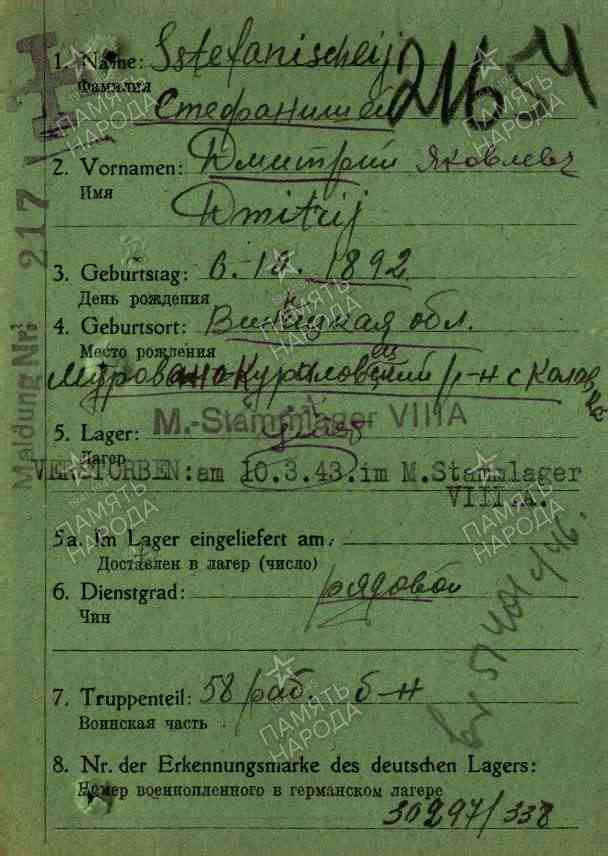 1. Name: Sstefanischeij
Фамилия
Стефанишей
2164
2. Vornamen: Дмитрий Яковлевч
Имя
Dmitrij
3. Geburtstag: 6. 10. 1892
День рождения
4. Geburtsort: Виницкая обл.
Место рождения
Мурованокуриловецкий р-н с
M.-Stammlager VIIIA
5. Lager:
Лагер
VERSTORBEN: am 10.3.43.im M.Stammlager
VIII.A.
5a. Im Lager eingeliefert am:
Доставлен в лагер (число)
6. Dienstgrad: рядовой
Чин
7. Truppenteil: 58 раб. б-н
Воинская часть
8. Nr. der Erkennungsmarke des deutschen Lagers:
Номер военнопленного в германском лагере
30297/338
Meldung Nr: 217
ПАМЯТЬ
НАРОДА
ПАМЯТЬ
НАРОДА
ПАМЯТЬ
НАРОДА
ПАМЯТЬ
НАРОДА
ПАМЯТЬ
НАРОДА
ПАМЯТЬ
НАРОДА